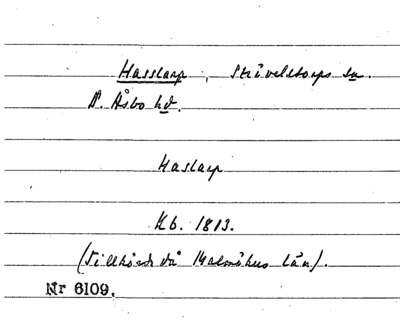 Hasslarp, Strövelstorps sn.
N. Åsbo hd.
Haslarp
Kb. 1813.
(Tillhörde då Malmöhus län).
Nr 6109.